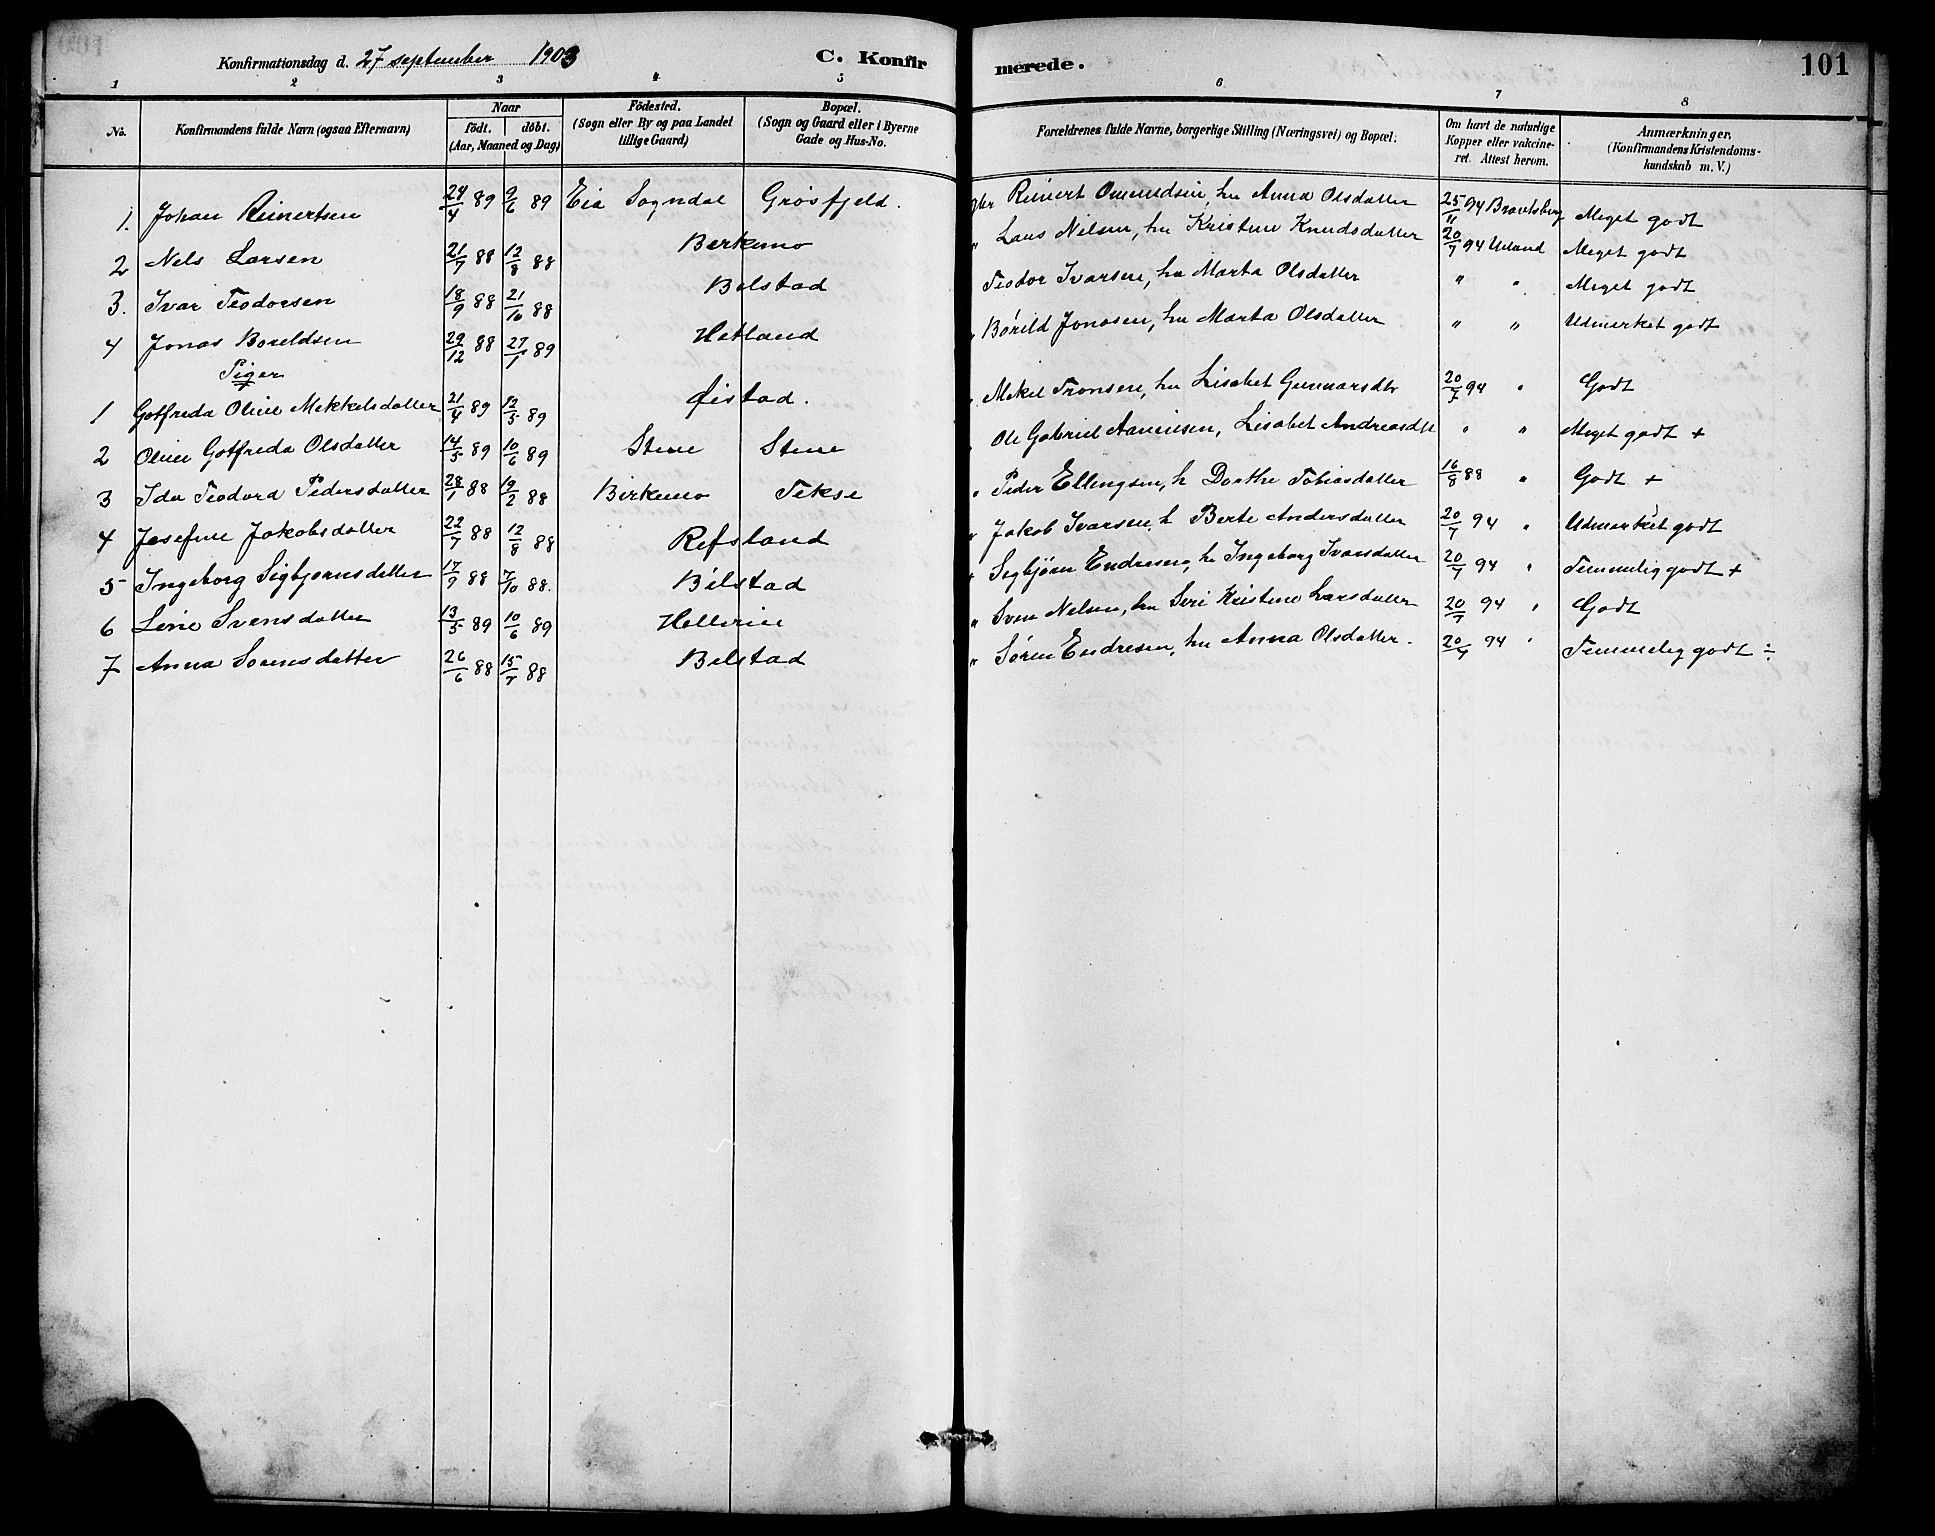 Konfirmationsdag d. 27 september 1903 C. Konfir merede. 101
1 2 3 4 5 6 7 8
No. Konfirmandens fulde Navn (ogsaa Efternavn) Naar födt. döbt. (Aar, Maaned og Dag) Födested. (Sogn eller By og paa Landet tillige Gaard) Bopæl. (Sogn og Gaard eller i Byerne Gade og Hus-No. Forældrenes fulde Navne, borgerlige Stilling (Næringsvei) og Bopæl. Om havt de naturlige Kopper eller vakcineret. Attest herom. Anmærkninger. (Konfirmandens Kristendomskundskab m. V.)
1. Johan Reinertsen 24/4 89 9/6 89 Eia Sogndal Grøsfjeld. gbr Reinert Ommundsen, hu Anna Olsdatter 25/11 94 Meget godt
2 Nels Larsen 21/7 88 12/8 88 Berkemo " Lars Nilsen, hu Kristine Knudsdatter 20/7 94 Ueland Meget godt
3. Ivar Teodorsen 18/9 88 21/10 88 Bilstad Teodor Ivarsen, hu Marta Olsdatter " " Meget godt
4 Jonas Boreldsen 29/12 88 27/1 89 Hetland " Børild Jonasen, hu Marta Olsdatter " " Udmerket godt
Piger
1 Gotfreda Oline Mekkelsdatter 21/4 89 12/5 89 Øistad. " Mekel Tronsen, hu Lisabet Gunnarsdtr 20/7 94 " Godt
2 Oline Gotfreda Olsdatter 14/5 89 10/6 89 Stene Stene " Ole Gabriel Aanensen, Lisabet Andreasdtr " " Meget godt +
3 Ida Teodora Pedersdatter 28/1 88 19/2 88 Birkemo Tekse " Peder Ellingsen, h Dorthe Tobiasdatter 16/8 88 " Godt +
4 Josefine Jakobsdatter 22/7 88 12/8 88 Refsland " Jakob Ivarsen, h Berte Andersdatter 20/7 94 " Udmerket godt
5 Ingeborg Sigbjørnsdatter 17/9 88 7/10 88. Bilstad " Segbjørn Endresen, hu Ingeborg Ivarsdatter 20/7 94 " Temmelig godt +
6 Line Svensdatter 13/5 89 10/6 89 Helleren " Sven Nelsen, hu Seri Kristine Larsdatter 20/7 94 " Godt
7 Anna Sørensdatter 26/6 88 15/7 88 Bilstad " Søren Endresen, hu Anna Olsdatter. 20/7 94 " Temmelig godt ÷